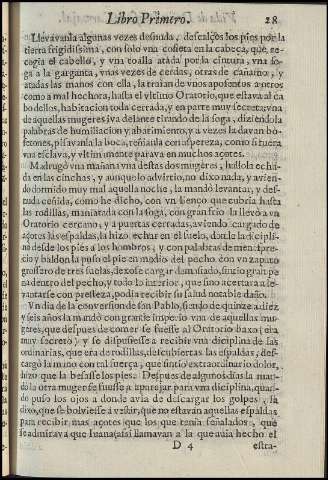 Libro Primero. 28
Lleuauanla algunas vezes desnuda, descalços los pies por la
tierra frigidissima, con solo vna cofieta en la cabeça, que re-
cogia el cabello, y vna toalla atada por la cintura, vna so-
ga a la garganta, vnas vezes de cerdas, otras de cañamo, y
atadas las manos con ella, la traìan de vnos aposentos a otros
como a mal hechora, hasta el vltimo Oratorio, que estaua al ca
bo dellos, habitacion toda cerrada, y en parte muy secreta: vna
de aquellas mugeres iva delante tirando de la soga, diziendola
palabras de humiliacion y abatimiento, y a vezes la davan bo
fetones, pisavanla la boca, reñianla con aspereza, como si fuera
vna esclava, y vltimamente parava en muchos açotes.
Madrugò vna mañana vna destas dos mugeres, hallola echa-
da en las cinchas, y aunque lo advirtio, no dixo nada, y avien-
do dormido muy mal aquella noche, la mandò levantar, y des-
nuda ceñida, como he dicho, con vn lienço que cubria hasta
las rodillas, maniatada con la soga, con gran frio la llevò a vn
Oratorio cercano, y a puertas cerradas, aviendo cargado de
açotes las espaldas, la hizo echar en el suelo, donde la discipli-
nò desde los pies a los hombros; y con palabras de menospre-
cio y baldon la puso el pie en medio del pecho con vn zapato
grossero de tres suelas, dexose cargar demasiado, sintio gran pe
a dentro del pecho, y todo lo interior, que sino acertara a le-
vantarse con presteza, podia recibir su salud notable daño.
Vn dia de la conversion de san Pablo, siendo de quinze a diez
y seis años la mandò con grande imperio vna de aquellas mu-
geres, que despues de comer se fuesse al Oratorio baxo (era
muy secreto) y se dispusiesse a recibir vna diciplina de las
ordinarias, que era de rodillas, descubiertas las espaldas, des-
cargò la mano con tal fuerça, que sintio extraordinario dolor,
hizo que la besasse los pies. Despues de algunos dias la man-
dò la otra muger se fuesse a aparejar para vna diciplina, quan-
do puso los ojos a donde avia de descargar los golpes, la
dixo, que se bolviesse a vestir, que no estavan aquellas espaldas
para recibir mas açotes que los que tenia señalados, que
se admirava que Iuana (assi llamavan a la que avia hecho el
D 4 estra-